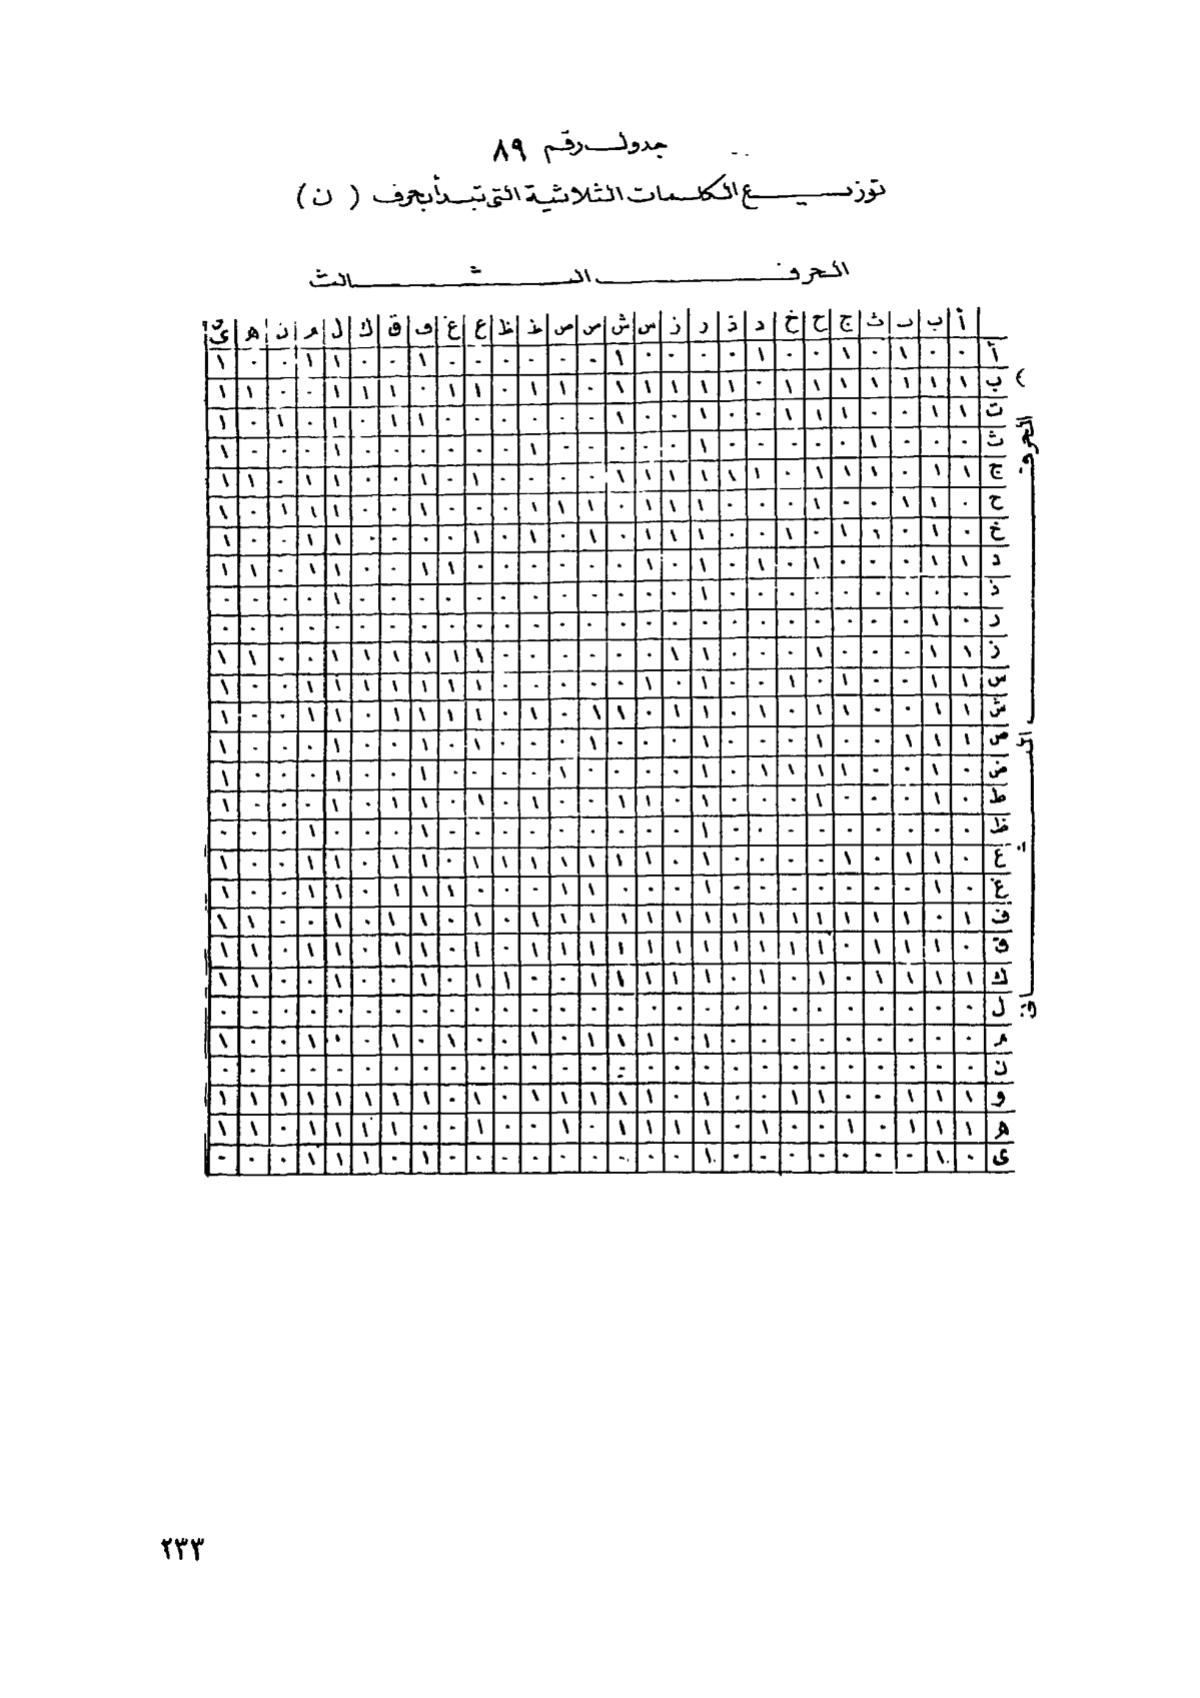 جدول رقم ٨٩
توزيع الكلمات الثلاثية التى تبدأ بحرف ( ن )
الحرف الثالث
أ ب ت ث ج ح خ د ذ ر ز س ش ص ض ط ظ ع غ ف ق ك ل م ن ه و ى
الحرف الثانى
أ ٠ ٠ ١ ٠ ١ ٠ ٠ ١ ٠ ٠ ٠ ٠ ١ ٠ ٠ ٠ ٠ ٠ ٠ ١ ٠ ٠ ١ ١ ٠ ٠ ١
ب ١ ١ ١ ١ ١ ١ ١ ٠ ١ ١ ١ ١ ١ ٠ ١ ١ ٠ ١ ١ ٠ ١ ١ ١ ٠ ٠ ١ ١
ت ١ ١ ٠ ٠ ١ ١ ١ ٠ ٠ ١ ٠ ٠ ١ ٠ ٠ ٠ ٠ ٠ ٠ ١ ١ ٠ ١ ٠ ١ ٠ ١
ث ٠ ٠ ٠ ١ ٠ ٠ ٠ ٠ ٠ ١ ٠ ٠ ٠ ٠ ٠ ١ ٠ ٠ ٠ ٠ ٠ ٠ ١ ٠ ٠ ٠ ١
ج ١ ١ ٠ ١ ١ ١ ٠ ١ ١ ١ ١ ١ ١ ٠ ٠ ٠ ٠ ١ ٠ ١ ٠ ٠ ١ ١ ٠ ١ ١
ح ٠ ١ ١ ٠ ٠ ١ ٠ ٠ ٠ ١ ١ ١ ٠ ١ ١ ١ ٠ ٠ ٠ ١ ٠ ٠ ١ ١ ١ ٠ ١
خ ٠ ١ ٠ ١ ١ ٠ ١ ٠ ٠ ١ ١ ١ ٠ ١ ٠ ١ ٠ ١ ٠ ٠ ٠ ٠ ١ ١ ٠ ٠ ١
د ١ ١ ٠ ٠ ٠ ١ ٠ ١ ٠ ١ ٠ ١ ٠ ٠ ٠ ٠ ٠ ٠ ١ ١ ٠ ٠ ١ ١ ٠ ١ ١
ذ ٠ ٠ ٠ ٠ ٠ ٠ ٠ ٠ ٠ ١ ٠ ٠ ٠ ٠ ٠ ٠ ٠ ٠ ٠ ٠ ٠ ٠ ١ ٠ ٠ ٠ ٠
ر ٠ ١ ٠ ٠ ٠ ٠ ٠ ٠ ٠ ٠ ٠ ٠ ٠ ٠ ٠ ٠ ٠ ٠ ٠ ٠ ٠ ٠ ٠ ٠ ٠ ٠ ٠
ز ١ ١ ٠ ٠ ٠ ١ ٠ ٠ ٠ ١ ١ ٠ ٠ ٠ ٠ ٠ ٠ ١ ١ ١ ١ ١ ١ ٠ ٠ ١ ١
س ١ ١ ٠ ٠ ١ ٠ ١ ٠ ٠ ١ ٠ ١ ٠ ٠ ٠ ٠ ٠ ١ ١ ١ ١ ١ ١ ١ ٠ ٠ ١
ش ١ ١ ٠ ٠ ١ ١ ٠ ١ ٠ ١ ١ ٠ ١ ١ ٠ ١ ٠ ١ ١ ١ ١ ٠ ١ ١ ٠ ٠ ١
ص ١ ١ ١ ٠ ٠ ١ ٠ ٠ ٠ ١ ٠ ٠ ٠ ١ ٠ ٠ ٠ ١ ٠ ١ ٠ ٠ ١ ٠ ٠ ٠ ١
ض ٠ ١ ٠ ٠ ١ ١ ١ ١ ٠ ١ ٠ ٠ ٠ ٠ ١ ٠ ٠ ٠ ٠ ١ ٠ ٠ ١ ٠ ٠ ٠ ١
ط ٠ ١ ٠ ٠ ٠ ١ ٠ ٠ ٠ ١ ٠ ١ ١ ٠ ٠ ١ ٠ ١ ٠ ١ ١ ٠ ١ ٠ ٠ ٠ ١
ظ ٠ ٠ ٠ ٠ ٠ ٠ ٠ ٠ ٠ ١ ٠ ٠ ٠ ٠ ٠ ٠ ٠ ٠ ٠ ١ ٠ ٠ ٠ ١ ٠ ٠ ٠
ع ٠ ١ ١ ٠ ١ ٠ ٠ ٠ ٠ ١ ٠ ١ ١ ١ ١ ١ ١ ١ ٠ ١ ١ ٠ ١ ١ ٠ ٠ ١
غ ٠ ١ ٠ ٠ ٠ ٠ ٠ ٠ ٠ ١ ٠ ٠ ٠ ١ ١ ٠ ٠ ٠ ١ ١ ١ ٠ ١ ١ ٠ ٠ ١
ف ١ ٠ ١ ١ ١ ١ ١ ١ ١ ١ ١ ١ ١ ١ ١ ١ ٠ ١ ٠ ١ ١ ٠ ١ ٠ ٠ ١ ١
ق ٠ ١ ١ ١ ٠ ١ ١ ١ ١ ١ ١ ١ ١ ١ ١ ١ ٠ ١ ٠ ١ ١ ٠ ١ ١ ٠ ١ ١
ك ١ ١ ١ ١ ٠ ١ ٠ ١ ٠ ١ ١ ١ ١ ١ ٠ ٠ ١ ١ ٠ ١ ٠ ٠ ١ ٠ ٠ ١ ١
ل ٠ ٠ ٠ ٠ ٠ ٠ ٠ ٠ ٠ ٠ ٠ ٠ ٠ ٠ ٠ ٠ ٠ ٠ ٠ ٠ ٠ ٠ ٠ ٠ ٠ ٠ ٠
م ٠ ٠ ٠ ٠ ٠ ٠ ٠ ٠ ٠ ١ ٠ ١ ١ ١ ٠ ١ ٠ ٠ ١ ٠ ١ ٠ ٠ ١ ٠ ٠ ١
ن ٠ ٠ ٠ ٠ ٠ ٠ ٠ ٠ ٠ ٠ ٠ ٠ ٠ ٠ ٠ ٠ ٠ ٠ ٠ ٠ ٠ ٠ ٠ ٠ ٠ ٠ ٠
و ١ ١ ١ ٠ ٠ ١ ١ ٠ ٠ ١ ٠ ١ ١ ١ ١ ١ ٠ ١ ٠ ١ ١ ١ ١ ١ ١ ١ ١
ه ١ ١ ١ ٠ ١ ٠ ٠ ١ ٠ ١ ١ ١ ١ ٠ ١ ٠ ٠ ١ ٠ ٠ ١ ١ ١ ١ ٠ ١ ١
ى ٠ ١ ٠ ٠ ٠ ٠ ٠ ٠ ٠ ١ ٠ ٠ ٠ ٠ ٠ ٠ ٠ ٠ ٠ ١ ٠ ١ ١ ١ ٠ ٠ ٠
٢٣٣